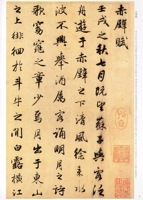 赤壁賦
壬戌之秋七月既望蘇子與客泛
舟遊于赤壁之下清風徐來水
波不興舉酒屬客誦明月之詩
歌窈窕之章少焉月出于東山
之上徘徊於斗牛之間白露橫江